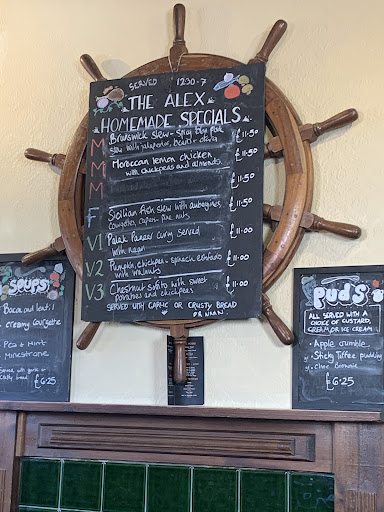 SERVED 1230-7
THE ALEX
HOMEMADE SPECIALS
M Brunswick stew - spicy bbq pork
stew with jalapenos, beans £11.50
M Moroccan lemon chicken
with chickpeas and almonds £11.50
M £11.50
F Sicilian fish stew with aubergines
courgettes, capers, pine nuts £11.50
V1 Palak Paneer curry served
with naan £11.00
V2 Pumpkin, chickpea, spinach
with walnuts £11.00
V3 Chestnut with sweet
potatoes and chickpeas £11.00
SERVED WITH GARLIC OR CRUSTY BREAD
OR NAAN
SOUPS
Bacon and lentil
creamy courgette
Pea & Mint
Minestrone
Served with garlic or
crusty bread
£6.25
PUDS
ALL SERVED WITH A
CHOICE OF CUSTARD,
CREAM OR ICE CREAM
Apple crumble
v Sticky Toffee pudding
v Choc Brownie
£6.25